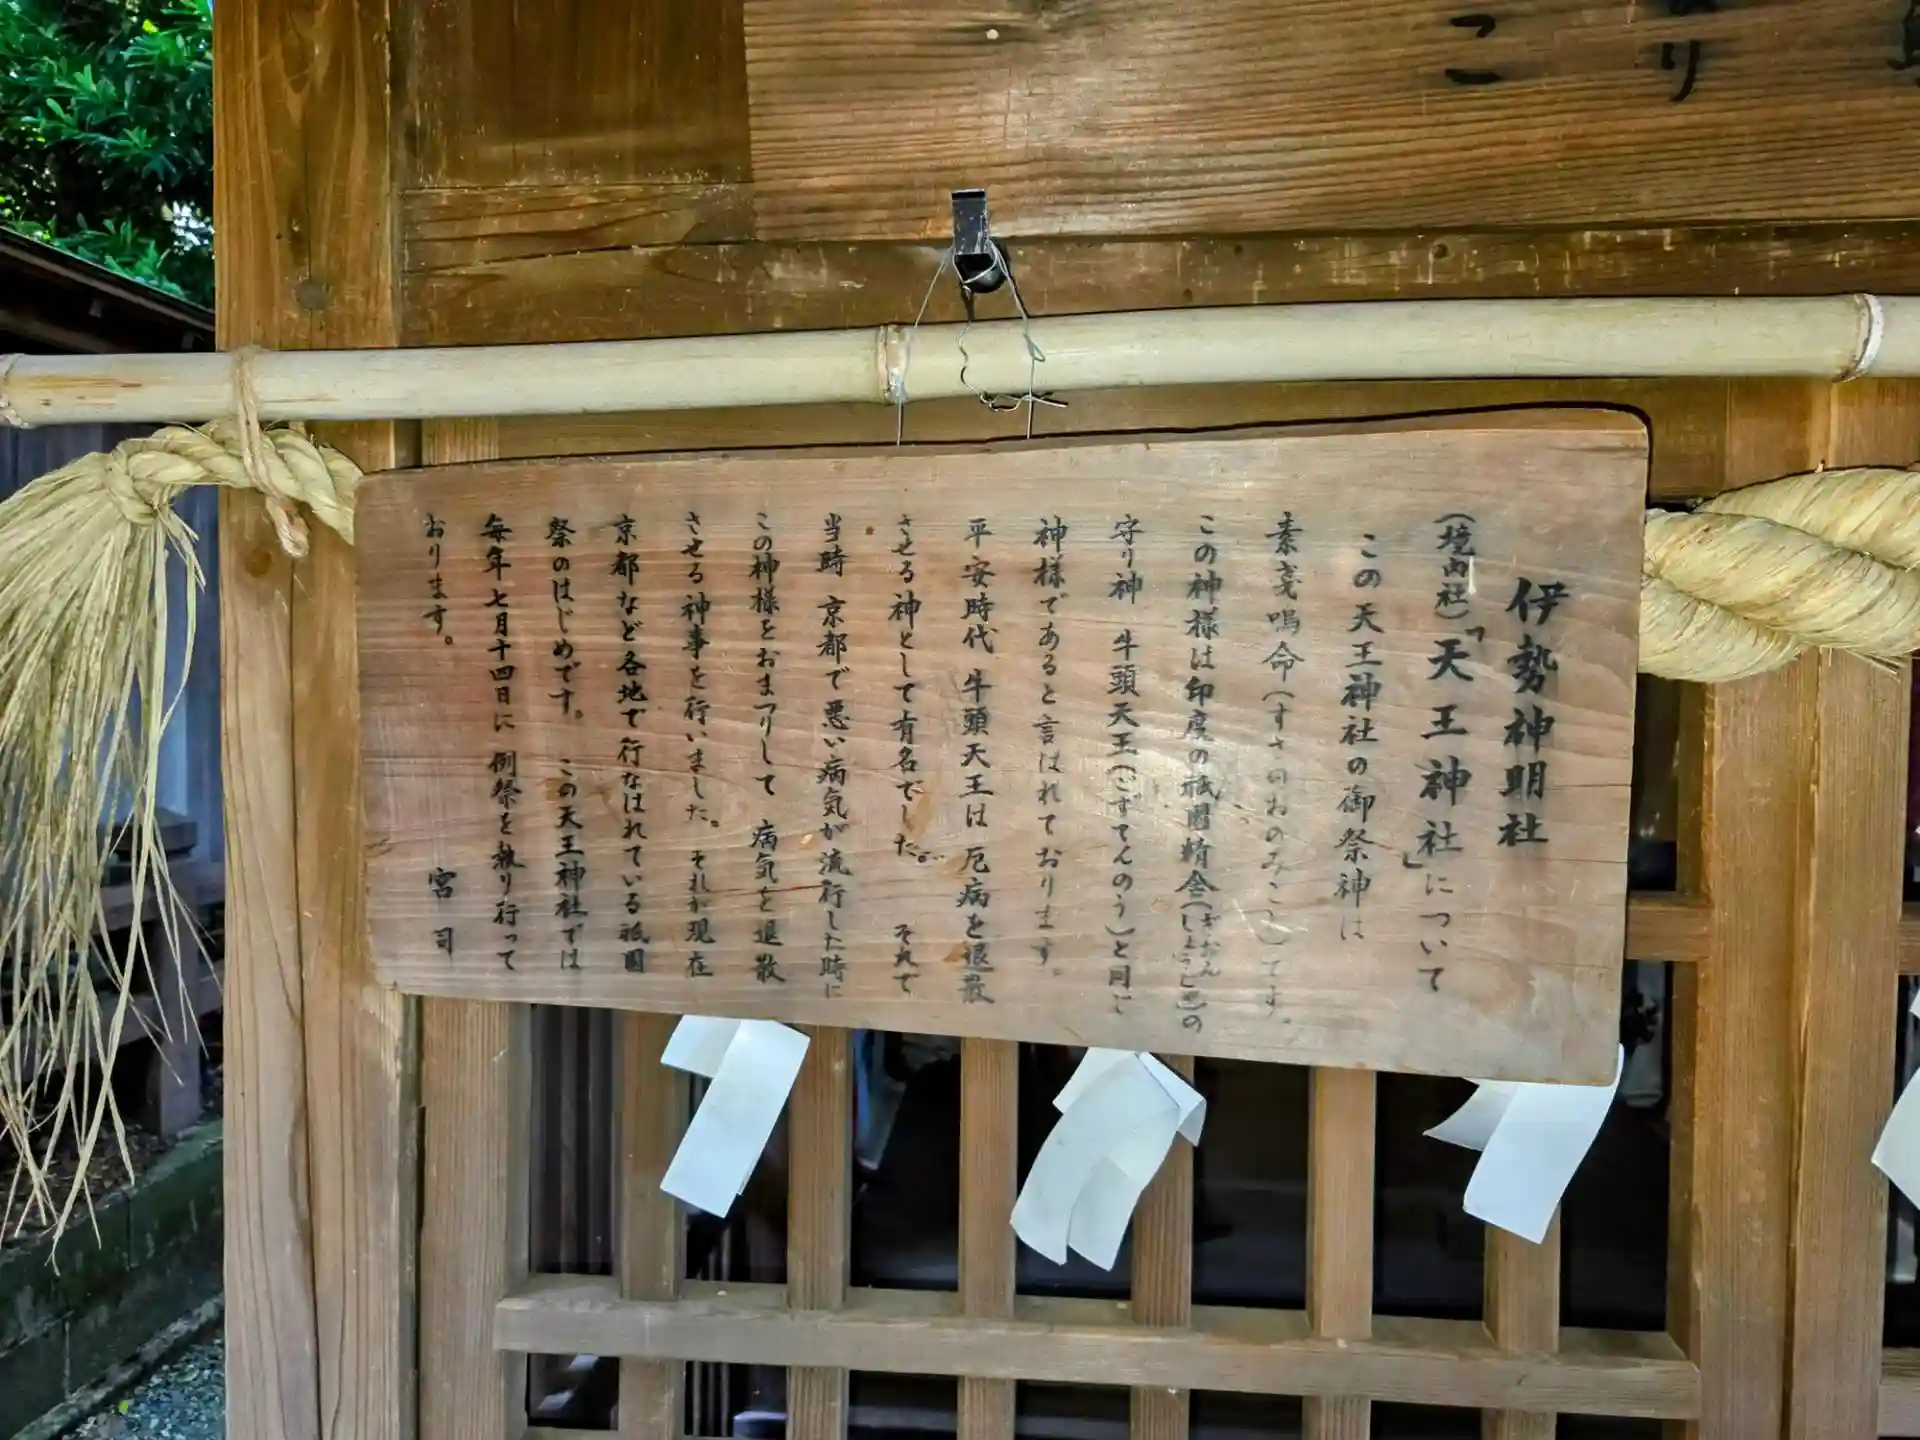 伊勢神明社
（境内社）「天王神社」について
この天王神社の御祭神は
素戔嗚命（すさのおのみこと）です。
この神様は印度の祇園精舎（ぎおんしょうじゃ）の
守り神　牛頭天王（ごずてんのう）と同じ
神様であると言はれております。
平安時代 牛頭天王は 厄病を退散
させる神として有名でした。　それで
当時 京都で悪い病気が流行した時に
この神様をおまつりして 病気を退散
させる神事を行いました。それが現在
京都など各地で行なはれている祇園
祭のはじめです。この天王神社では
毎年七月十四日に 例祭を執り行って
おります。
宮　司